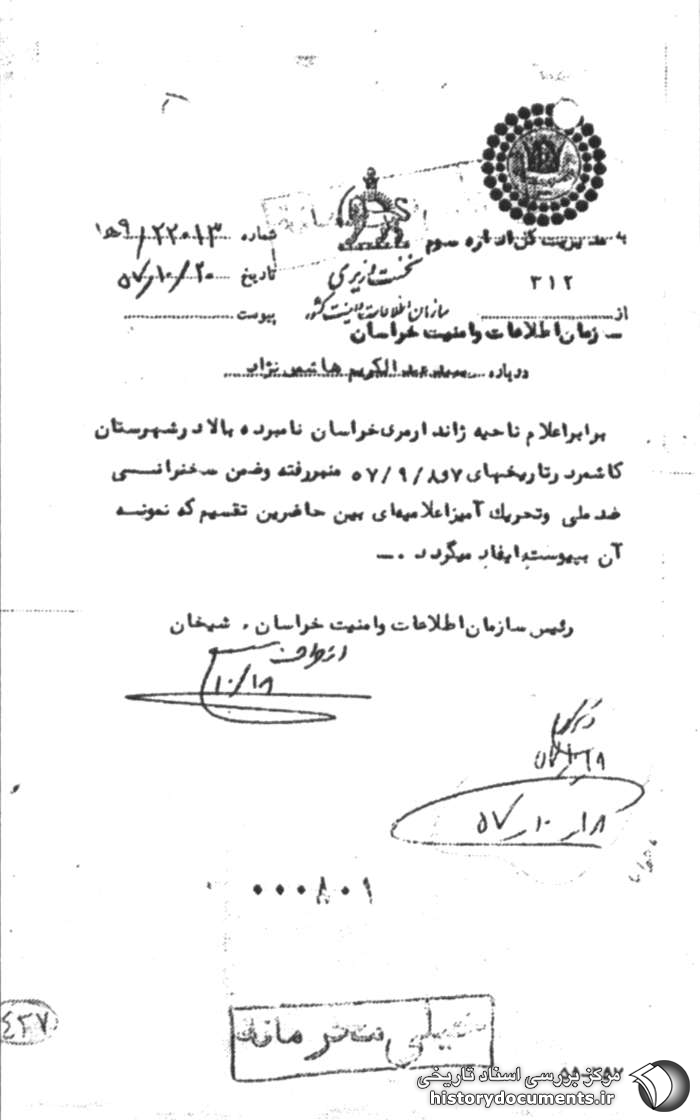 به مدیریت کل اداره سوم
۳۱۲
از
سازمان اطلاعات وامنیت خراسان
نخست وزیری
سازمان اطلاعات و امنیت کشور
شماره ۹/۲۲۰۱۳ ه‍۱
تاریخ ۵۷/۱۰/۲۰
پیوست
درباره سیدعبدالکریم هاشمی نژاد
برابراعلام ناحیه ژاندارمری خراسان نامبرده بالا درشهرستان
کاشمر درتاریخهای ۷و۵۷/۹/۸ منبررفته وضمن سخنرانی
ضدملی وتحریک آمیزاعلامیه‌ای بین حاضرین تقسیم که نمونه
آن بپیوست ایفاد میگردد .ــ
رئیس سازمان اطلاعات وامنیت خراسان . شیخان
از طرف
۱۰/۱۸
۱۸/۱۰/۵۷
۰۰۰۸۰۱
خیلی محرمانه
۴۲۷
مرکز بررسی اسناد تاریخی
historydocuments.ir